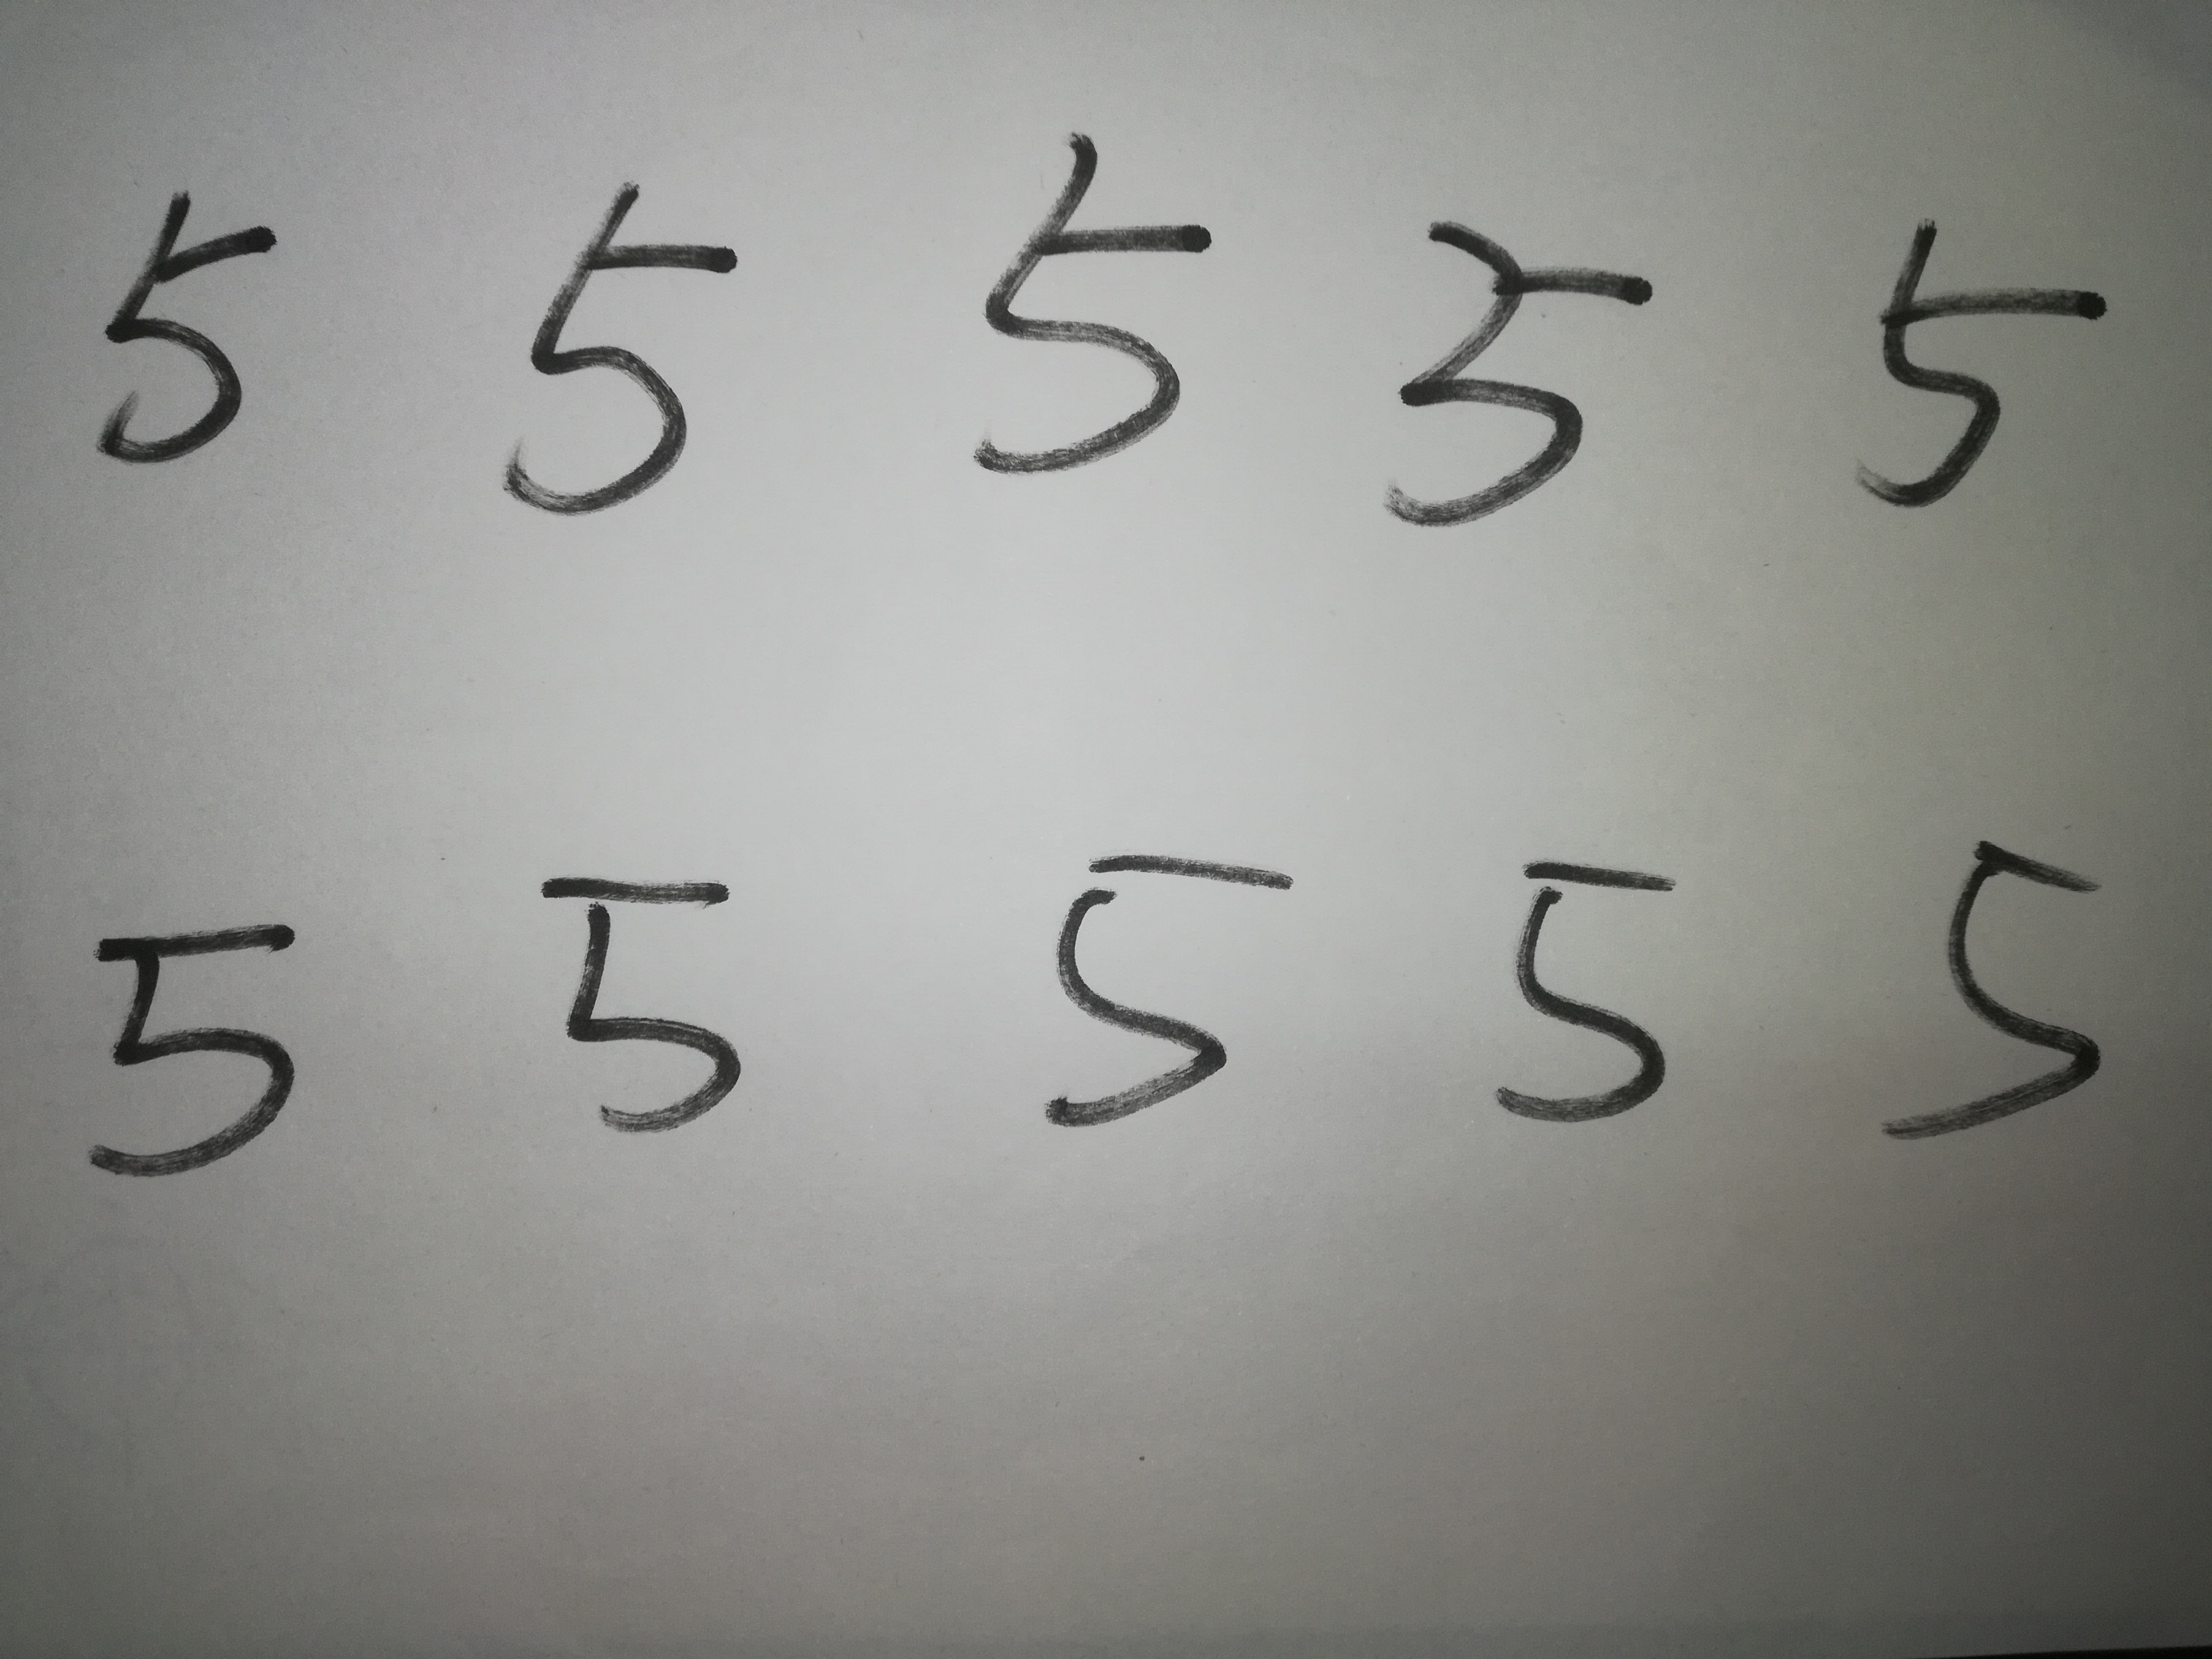 5 5 5 5 5
5 5 5 5 5